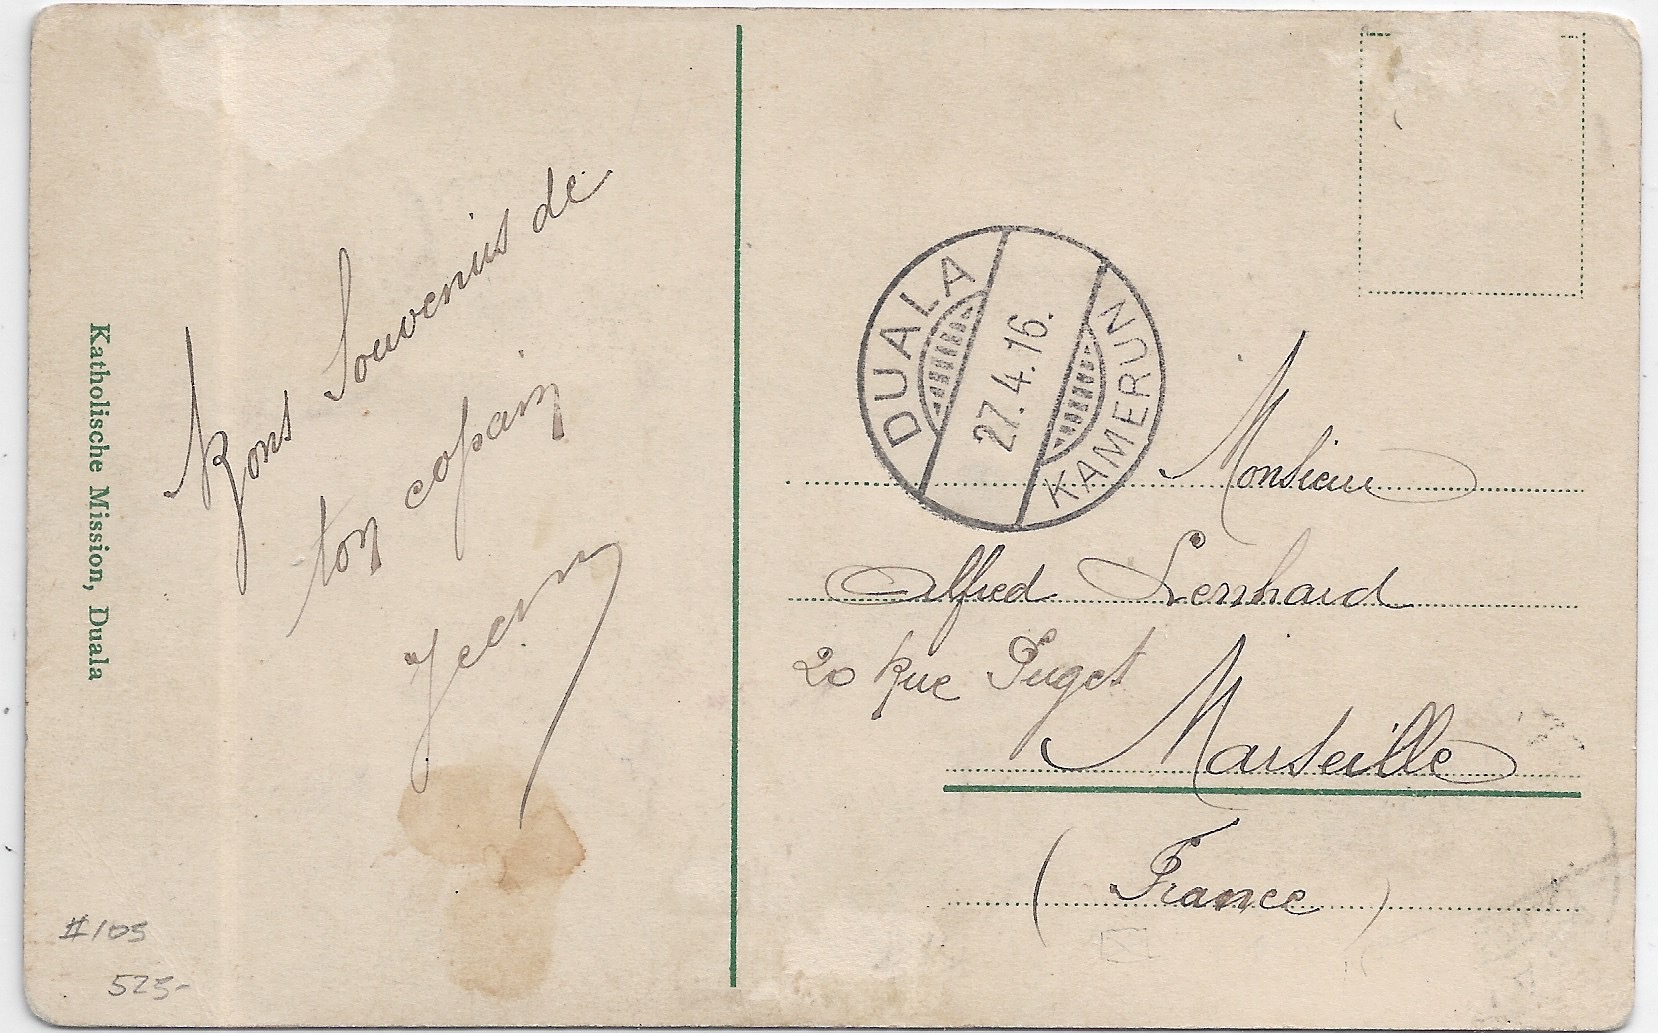 Katholische Mission, Duala
Bons Souvenirs de
ton copain
Jean
#105
525-
DUALA
27.4.16.
KAMERUN
Monsieur
Alfred Lenhard
20 Rue Puget
Marseille
(France)